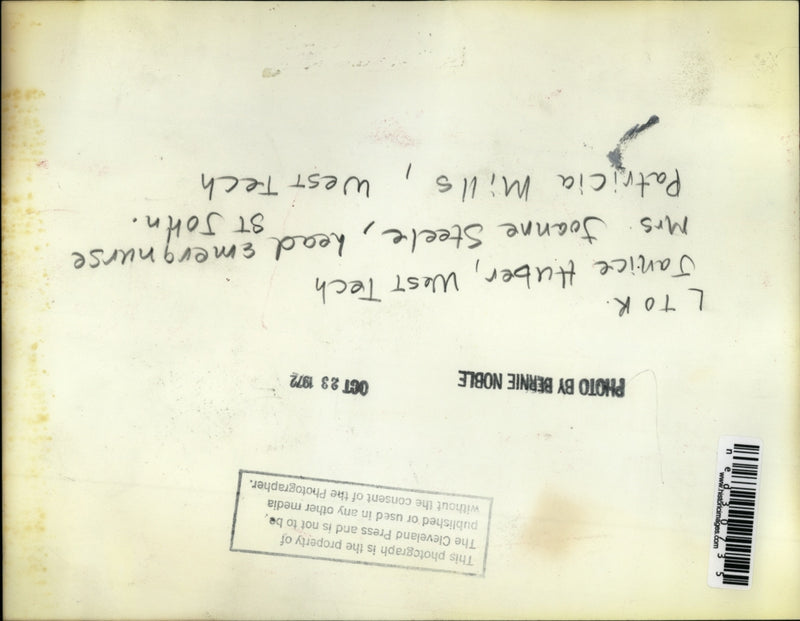 This photograph is the property of
The Cleveland Press and is not to be
published or used in any other media
without the consent of the Photographer.
PHOTO BY BERNIE NOBLE
OCT 23 1972
L TO R.
Janice Huber, West Tech
Mrs. Joanne Steele, head emerg nurse
ST JOHN.
Patricia Mills, West Tech
www.historicimages.com
ned30735